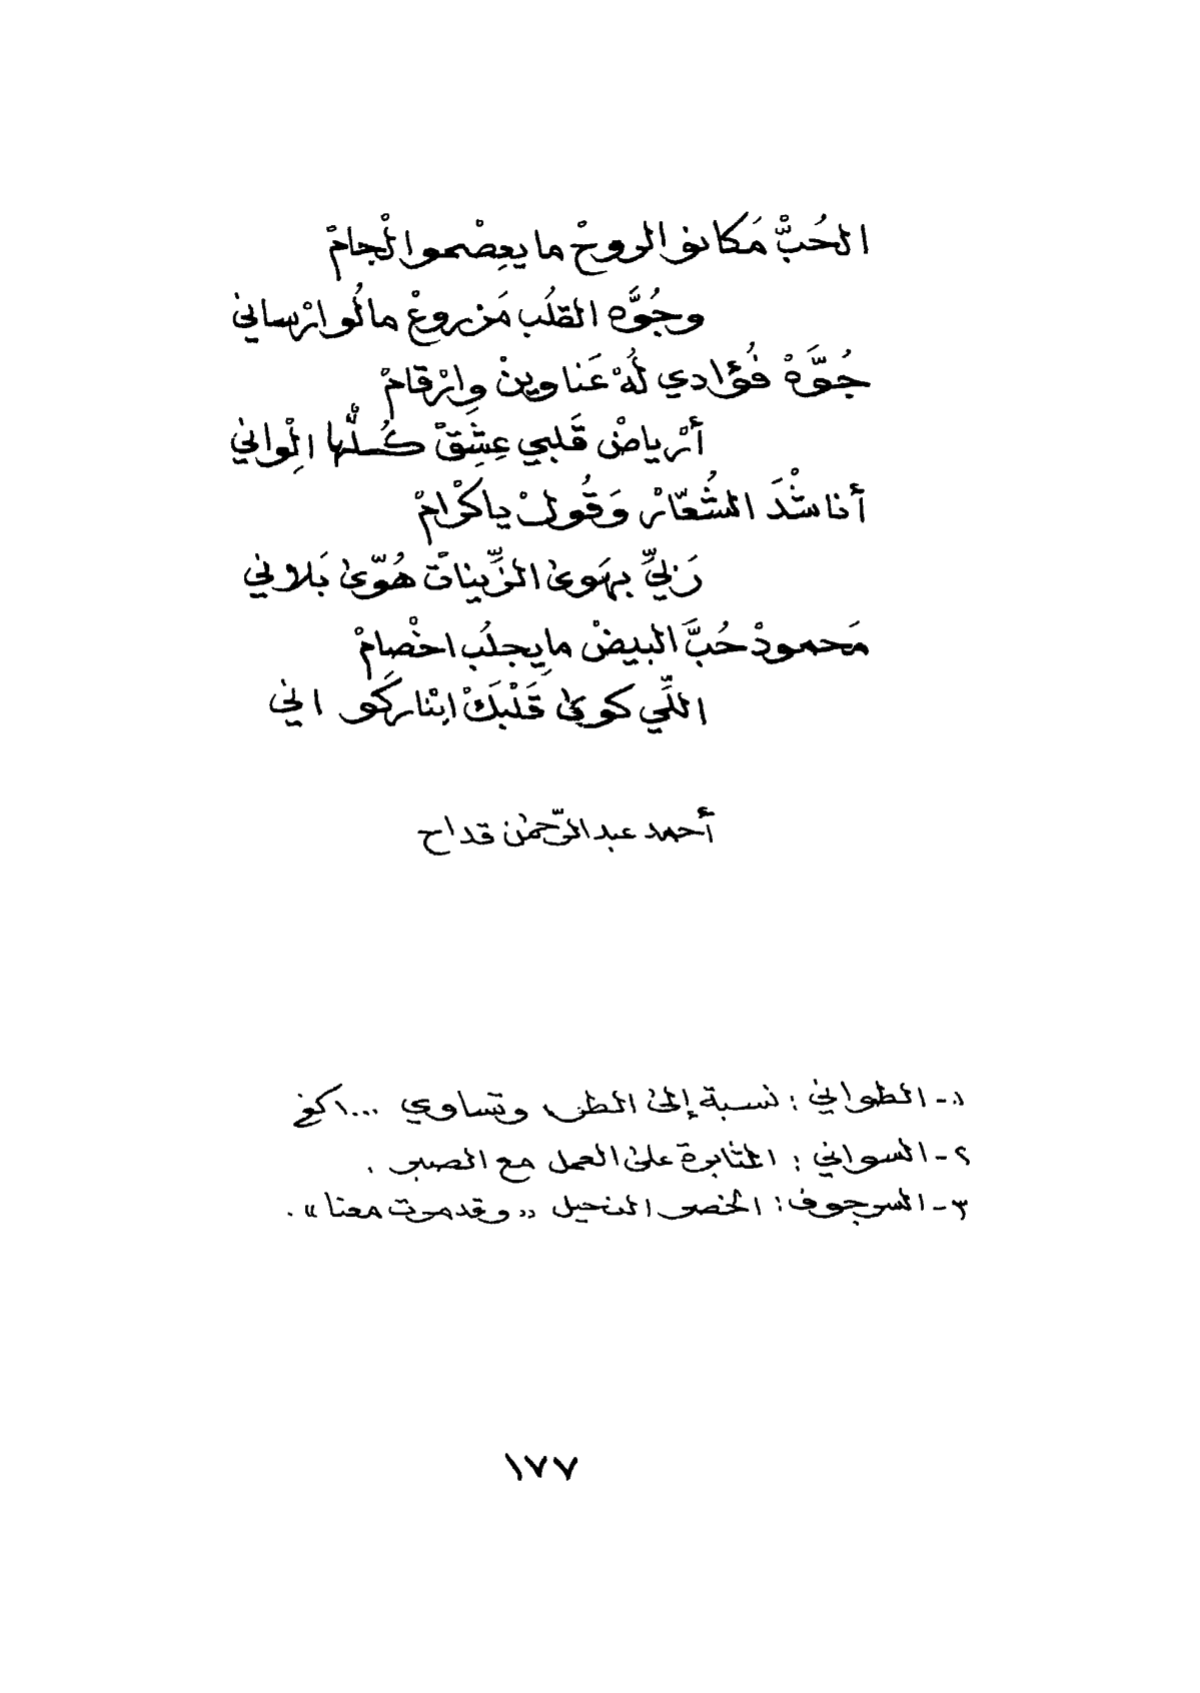 الحُبّْ مَكانو الروحْ ما يعِصْموا لْجامْ
وجُوَّه القلُب مَزروعْ مالُو ارْساني
جُوَّهْ فُؤادي لُهْ عَناوينْ وِارْقامْ
أرْياضْ قَلبي عِشِقْ كُلّْها الِْواني
أناشْدَ الشُعّارْ وَقُولْ ياكْرامْ
رَبّيِ بهَوىٰ الزّينِاتْ هُوّىٰ بَلاني
مَحمودْ حُبَّ البيضْ مايِجلُب اخْصامْ
اللّي كوىٰ قَلْبَكْ ابْنارَكو اني
أحمد عبدالرّحمٰن قداح
١- الطواني : نسبة إلىٰ الطن وتساوي ١٠٠٠كغ
٢- السواني : المثابرة علىٰ العمل مع الصبر .
٣- السرجوف : الخصر النحيل «وقد مرت معنا» .
١٧٧